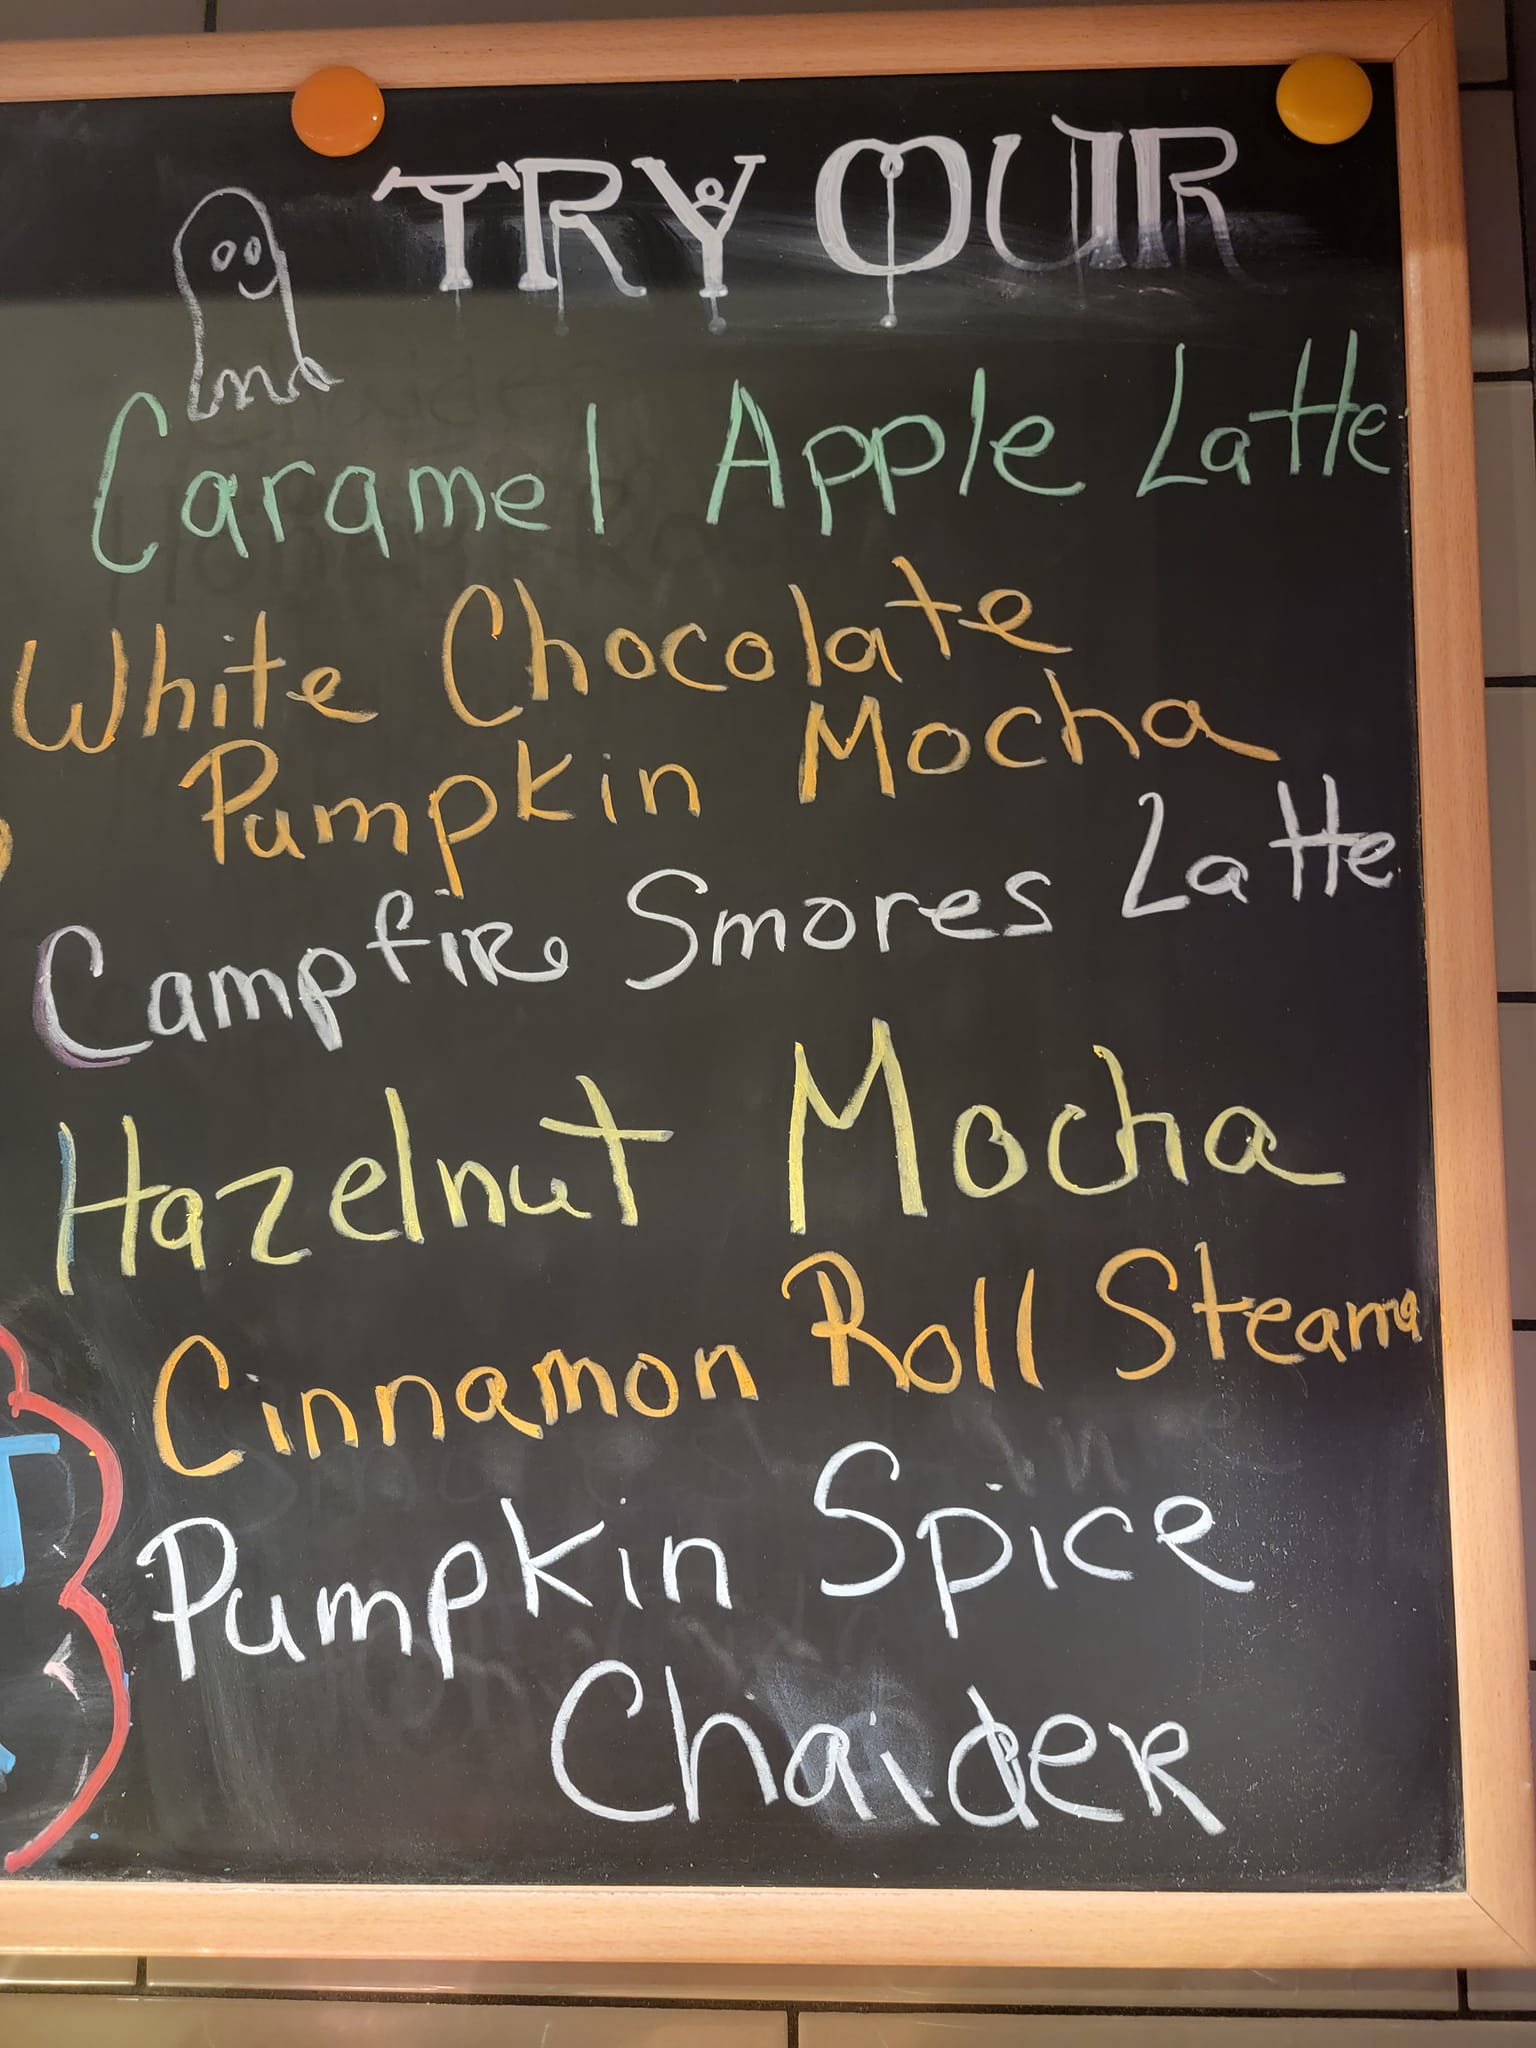 TRY OUR
Caramel Apple Latte
White Chocolate
Pumpkin Mocha
Campfire Smores Latte
Hazelnut Mocha
Cinnamon Roll Steama
Pumpkin Spice
Chaider